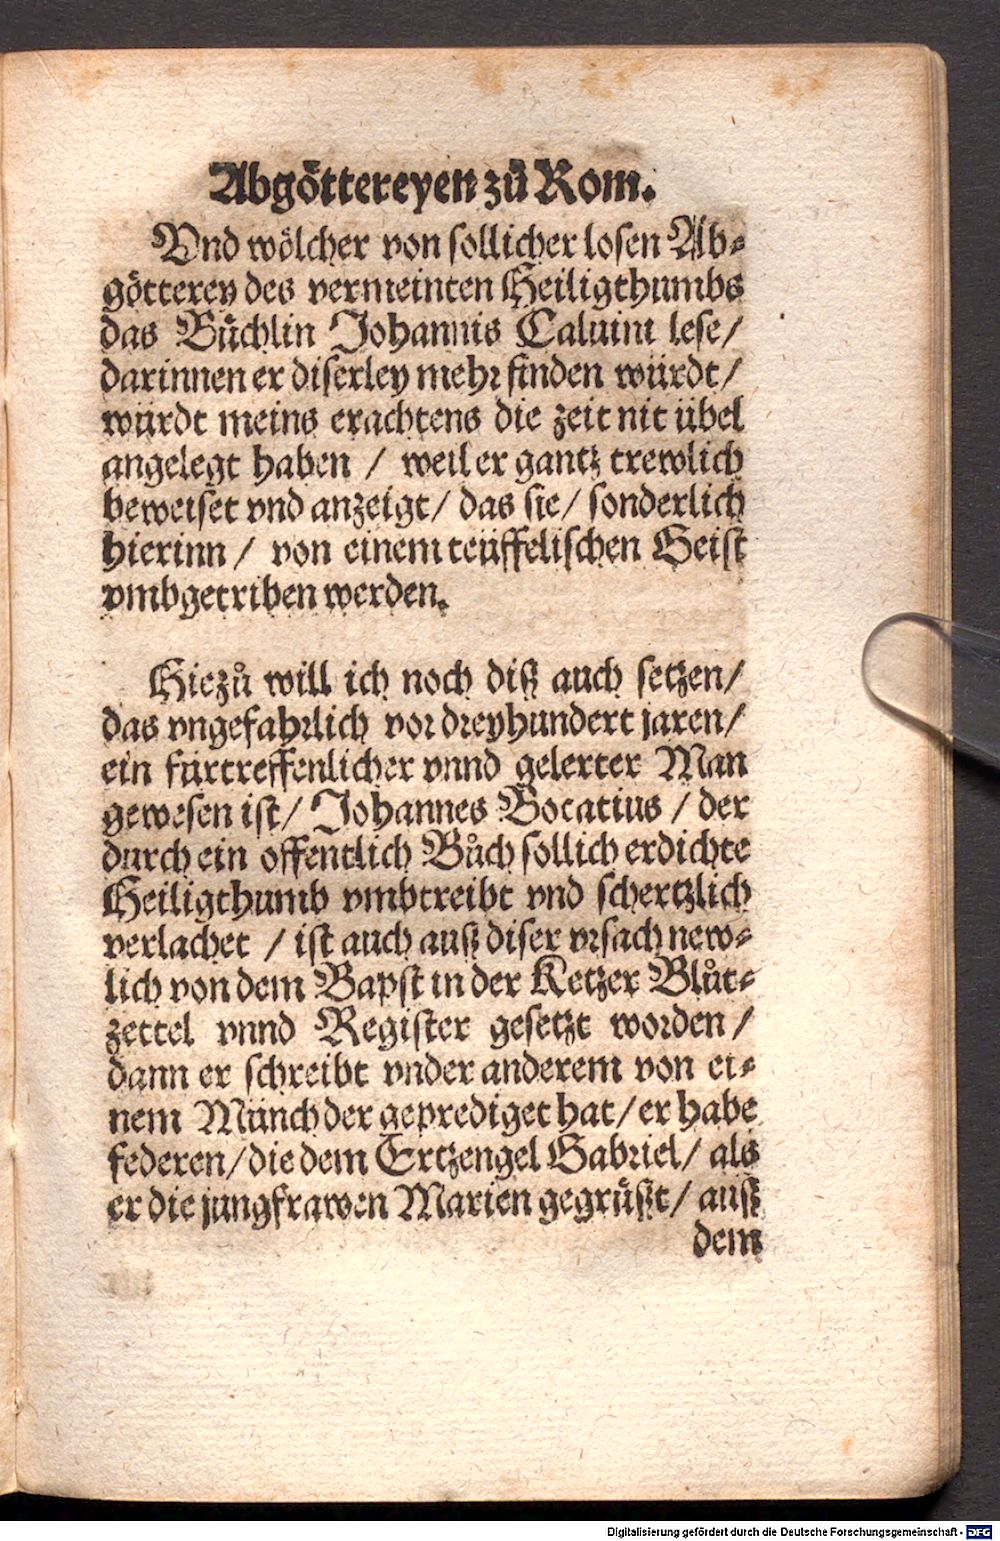 Abgöttereyen zů Rom.
Vnd wölcher von sollicher losen Ab-
götterey des vermeinten Heiligthumbs
das Büchlin Johannis Caluini lese/
darinnen er diserley mehr finden würdt/
würdt meins erachtens die zeit nit übel
angelegt haben / weil er gantz trewlich
beweiset vnd anzeigt/ das sie/ sonderlich
hierinn / von einem teüffelischen Geist
vmbgetriben werden.
Hiezů will ich noch diß auch setzen/
das vngefahrlich vor dreyhundert jaren/
ein fürtreffenlicher vnnd gelerter Man
gewesen ist/ Johannes Bocatius / der
durch ein offentlich Bůch sollich erdichte
Heiligthumb vmbtreibt vnd schertzlich
verlachet / ist auch auß diser vrsach new-
lich von dem Bapst in der Ketzer Blůt-
zettel vnnd Register gesetzt worden /
dann er schreibt vnder anderem von ei-
nem Münch der geprediget hat/ er habe
federen/ die dem Ertzengel Gabriel/ als
er die jungfrawen Marien gegrüßt/ auß
dem
Digitalisierung gefördert durch die Deutsche Forschungsgemeinschaft - DFG